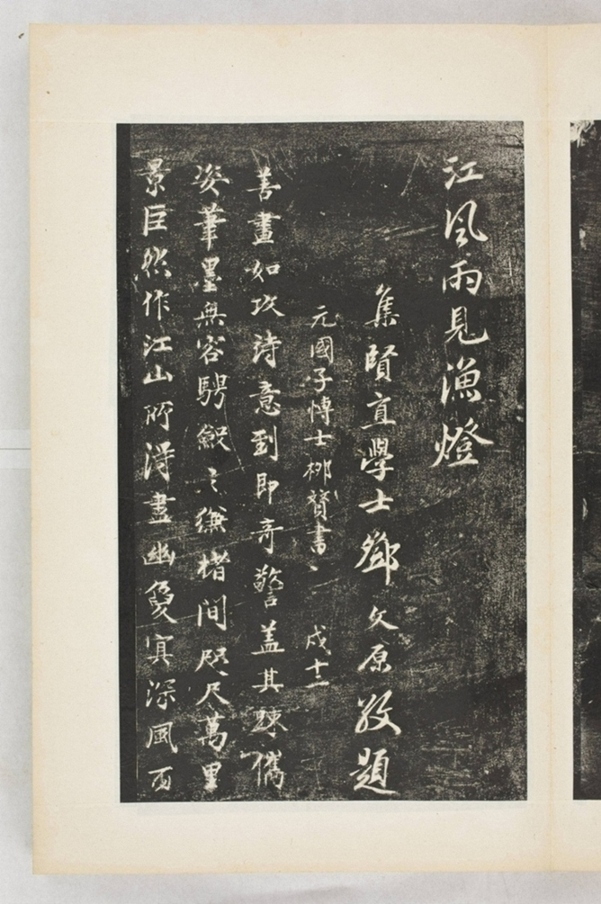 江風雨見漁燈
集賢直學士鄧文原敬題
元國子博士柳贊書 戍十二
善畫如攻詩意到即奇警蓋其疎儁
姿筆墨無容騁縑楮間咫尺萬里
景巨然作江山所得盡幽夐冥深風雨